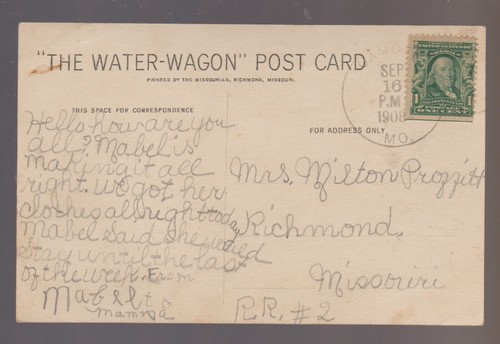 "THE WATER-WAGON" POST CARD
PRINTED BY THE MISSOURIAN, RICHMOND, MISSOURI.
THIS SPACE FOR CORRESPONDENCE
FOR ADDRESS ONLY
SEP
16
P.M.
1908
MO.
UNITED STATES
1 1
ONE CENT
Hello how are you
all? Mabel is
making it all
right. we got her
clothes alright today
Mabel said she
stay until the last
of the week. From
Mabel &
mamma
Mrs. Milton Prozzitt
Richmond
Missouri
R.R. #2